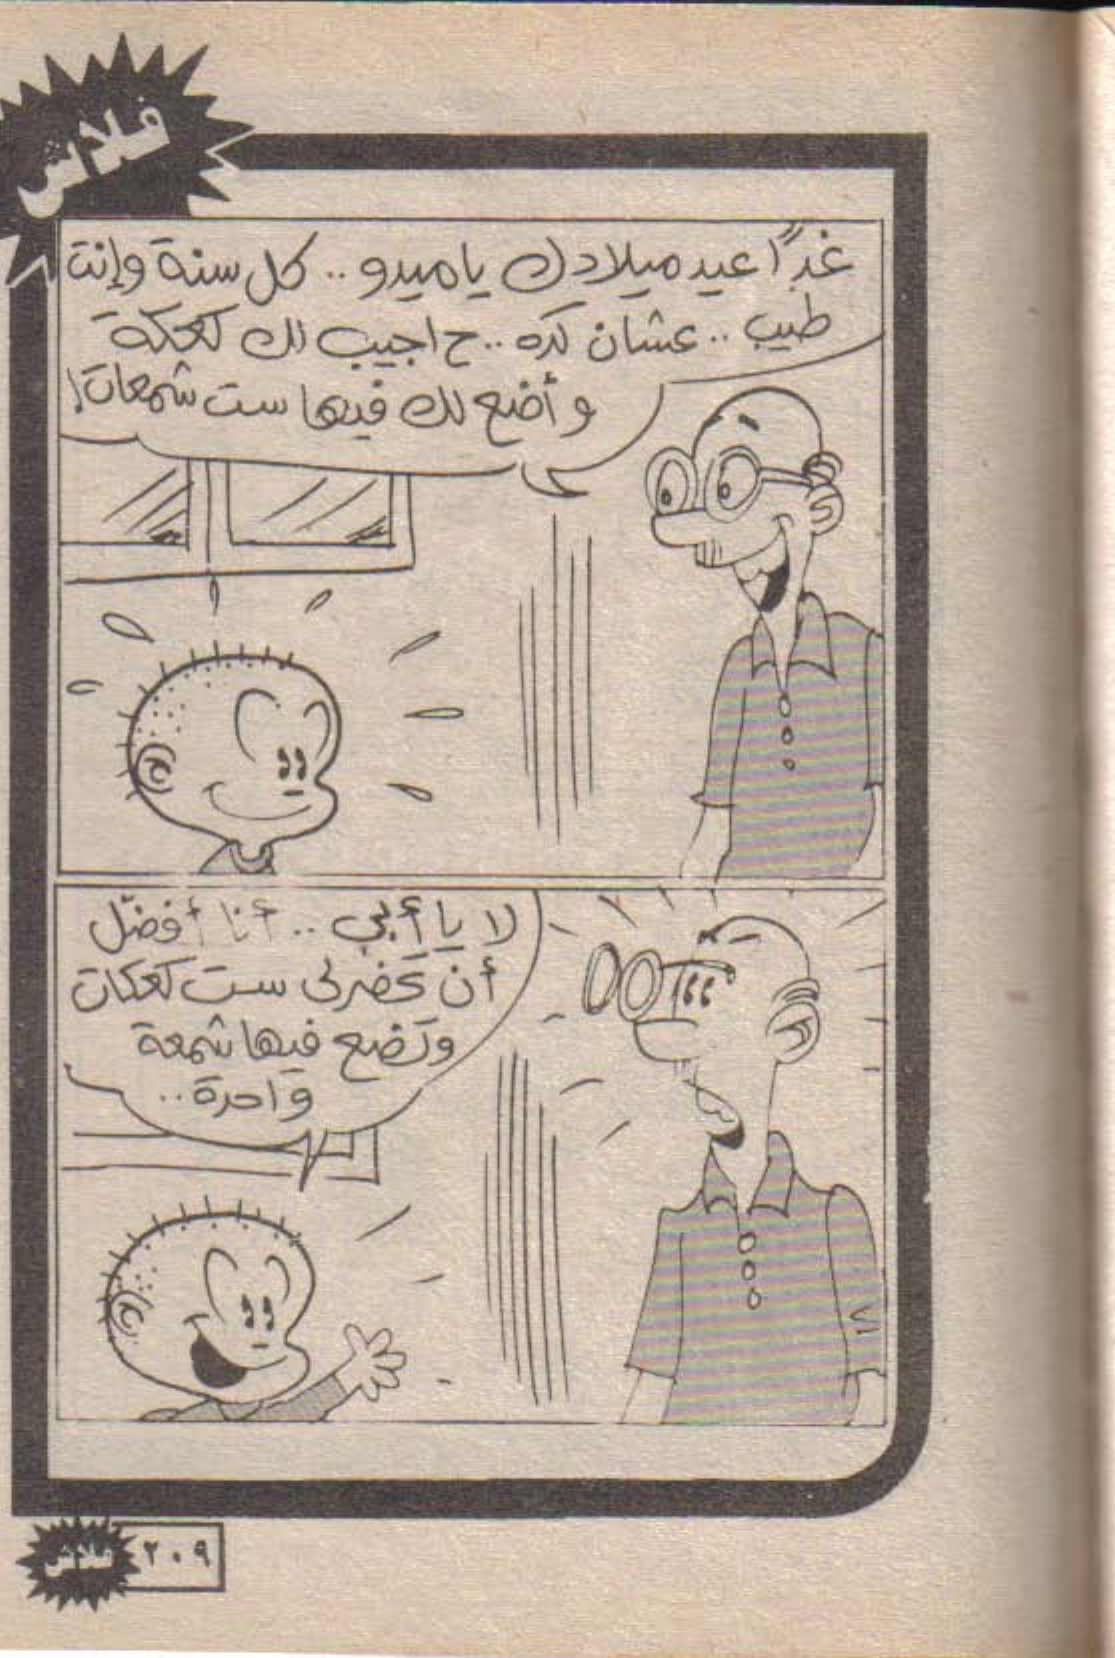 فلاش
غدًا عيد ميلادك ياميدو .. كل سنة وإنت
طيب .. عشان كده .. ح اجيب لك كعكة
و أضع لك فيها ست شمعات!
لا يا أبي .. أنا أفضّل
أن تحضرلى ست كعكات
وتضع فيها شمعة
واحدة ..
فلاش ٢٠٩